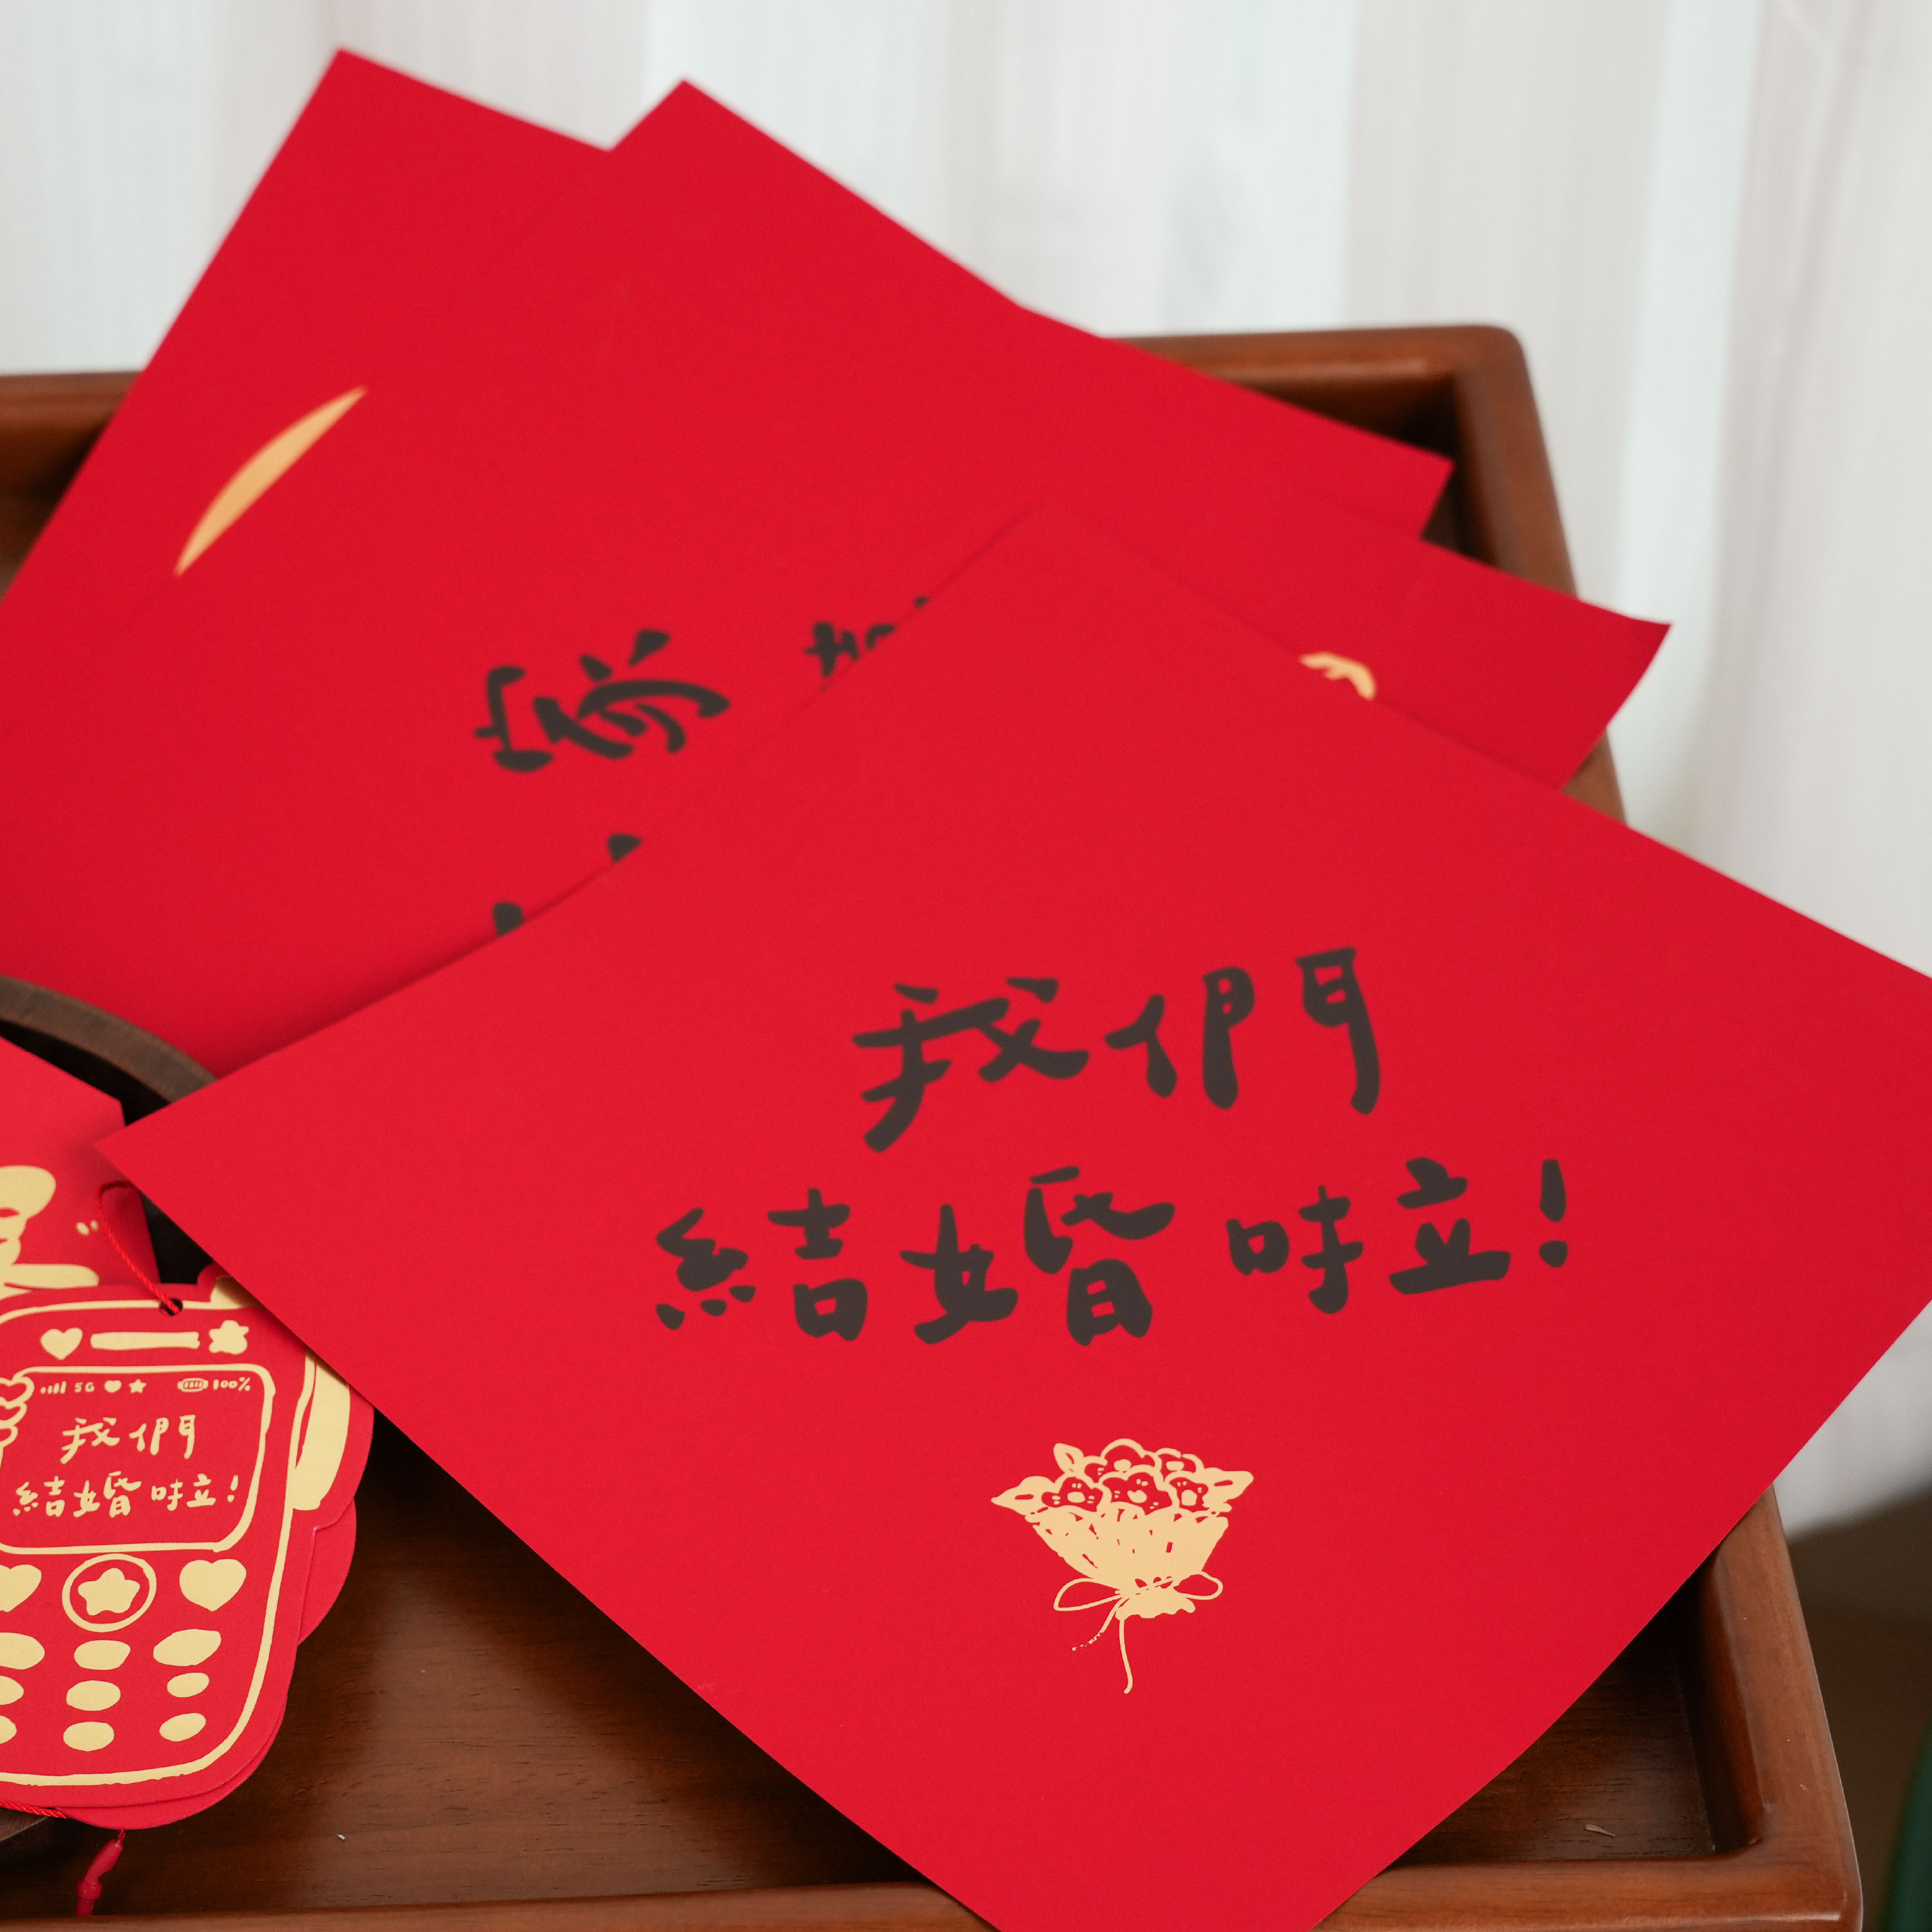 我們
結婚啦！
5G 100%
我們
結婚啦！